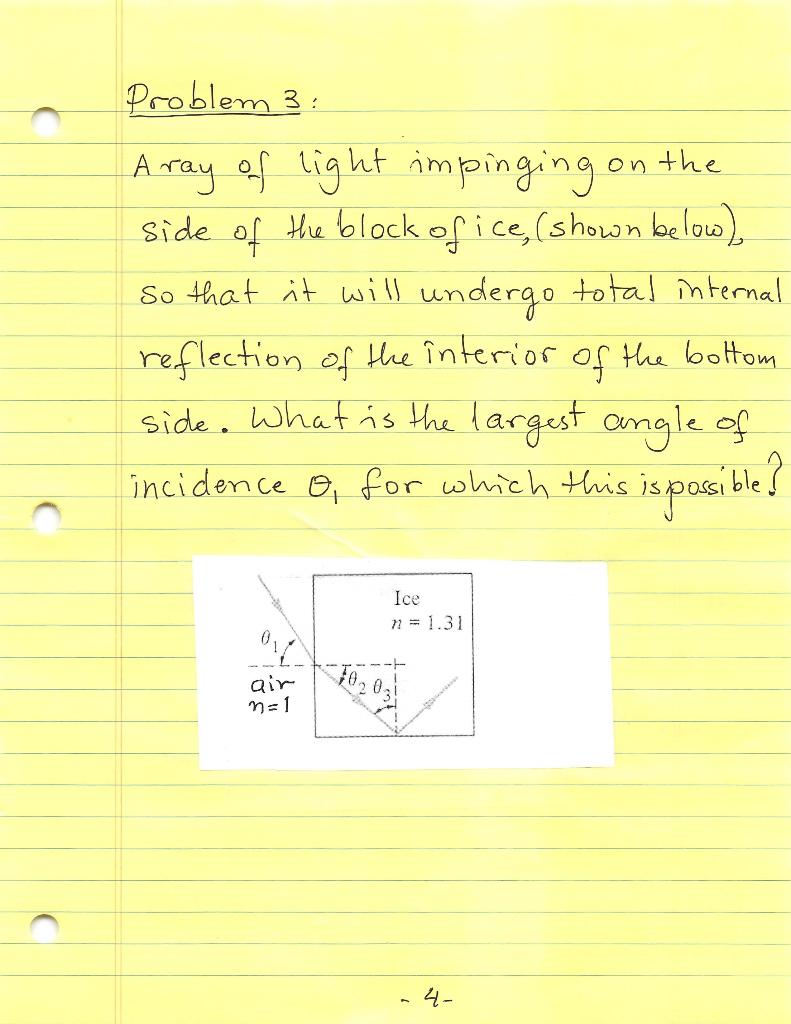 Problem 3:
A ray of light impinging on the
side of the block of ice, (shown below),
so that it will undergo total internal
reflection of the interior of the bottom
side. What is the largest angle of
incidence θ₁ for which this is possible?
Ice
n = 1.31
θ₁
air
n=1
θ₂ θ₃
- 4 -